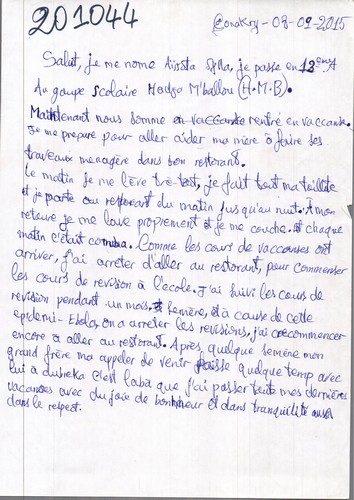 201044
Conakry - 08-09-2015
Salut, je me nome Aissata Sylla, je passe en 12ème A
Du goupe scolaire Hadja M'ballou (H.M.B).
Maintenant nous somme en vaccance rentré en vaccanse.
Je me prepare pour aller aider ma mère à faire ses
traveaux menagère dans son restorant.
Le matin je me lève tre-tost, je fait tout ma toillite
et je parte au restorant du matin jusqu'au nuit. À mon
retoure je me lave proprement et je me couche. et chaque
matin c'était comba. Comme les cour de vaccanses ont
arriver, j'ai arrêter d'aller au restorant, pour commenser
les cours de revision à l'ecole. J'ai suivi les cours de
revision pendant un mois, et semère, et à cause de cette
epidemi-Ebola, on a arreter les revisions, j'ai recommencer
encore à aller au restorant. Après, quelque semène mon
grand frère ma appeler de venir passe quelque temp avec
lui à dubreka c'est laba que j'ai passer toute mes dernières
vacances avec du joie de bonheur et dans tranquilité aussi
dans le respet.